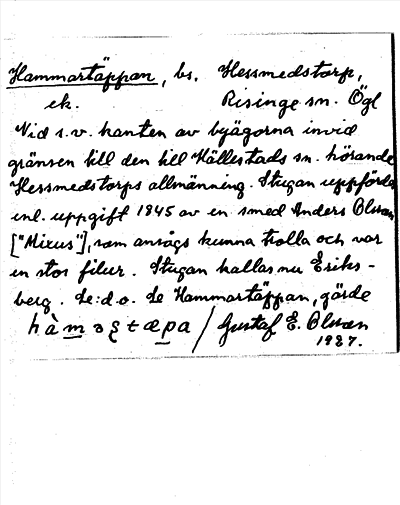 Hammartäppan, bs. Hessmedstorp,
ek. Risinge sn. Ögl
Vid s.v. kanten av byägorna invid
gränsen till den till Hällestads sn. hörande
Hessmedstorps allmänning. Stugan uppförd
enl. uppgift 1845 av en smed Anders Olsson
["Mixus"], som ansågs kunna trolla och var
en stor filur. Stugan kallas nu Eriks-
berg. Se: d.o. Se Hammartäppan, gärde
Gustaf E. Olsson
1927.